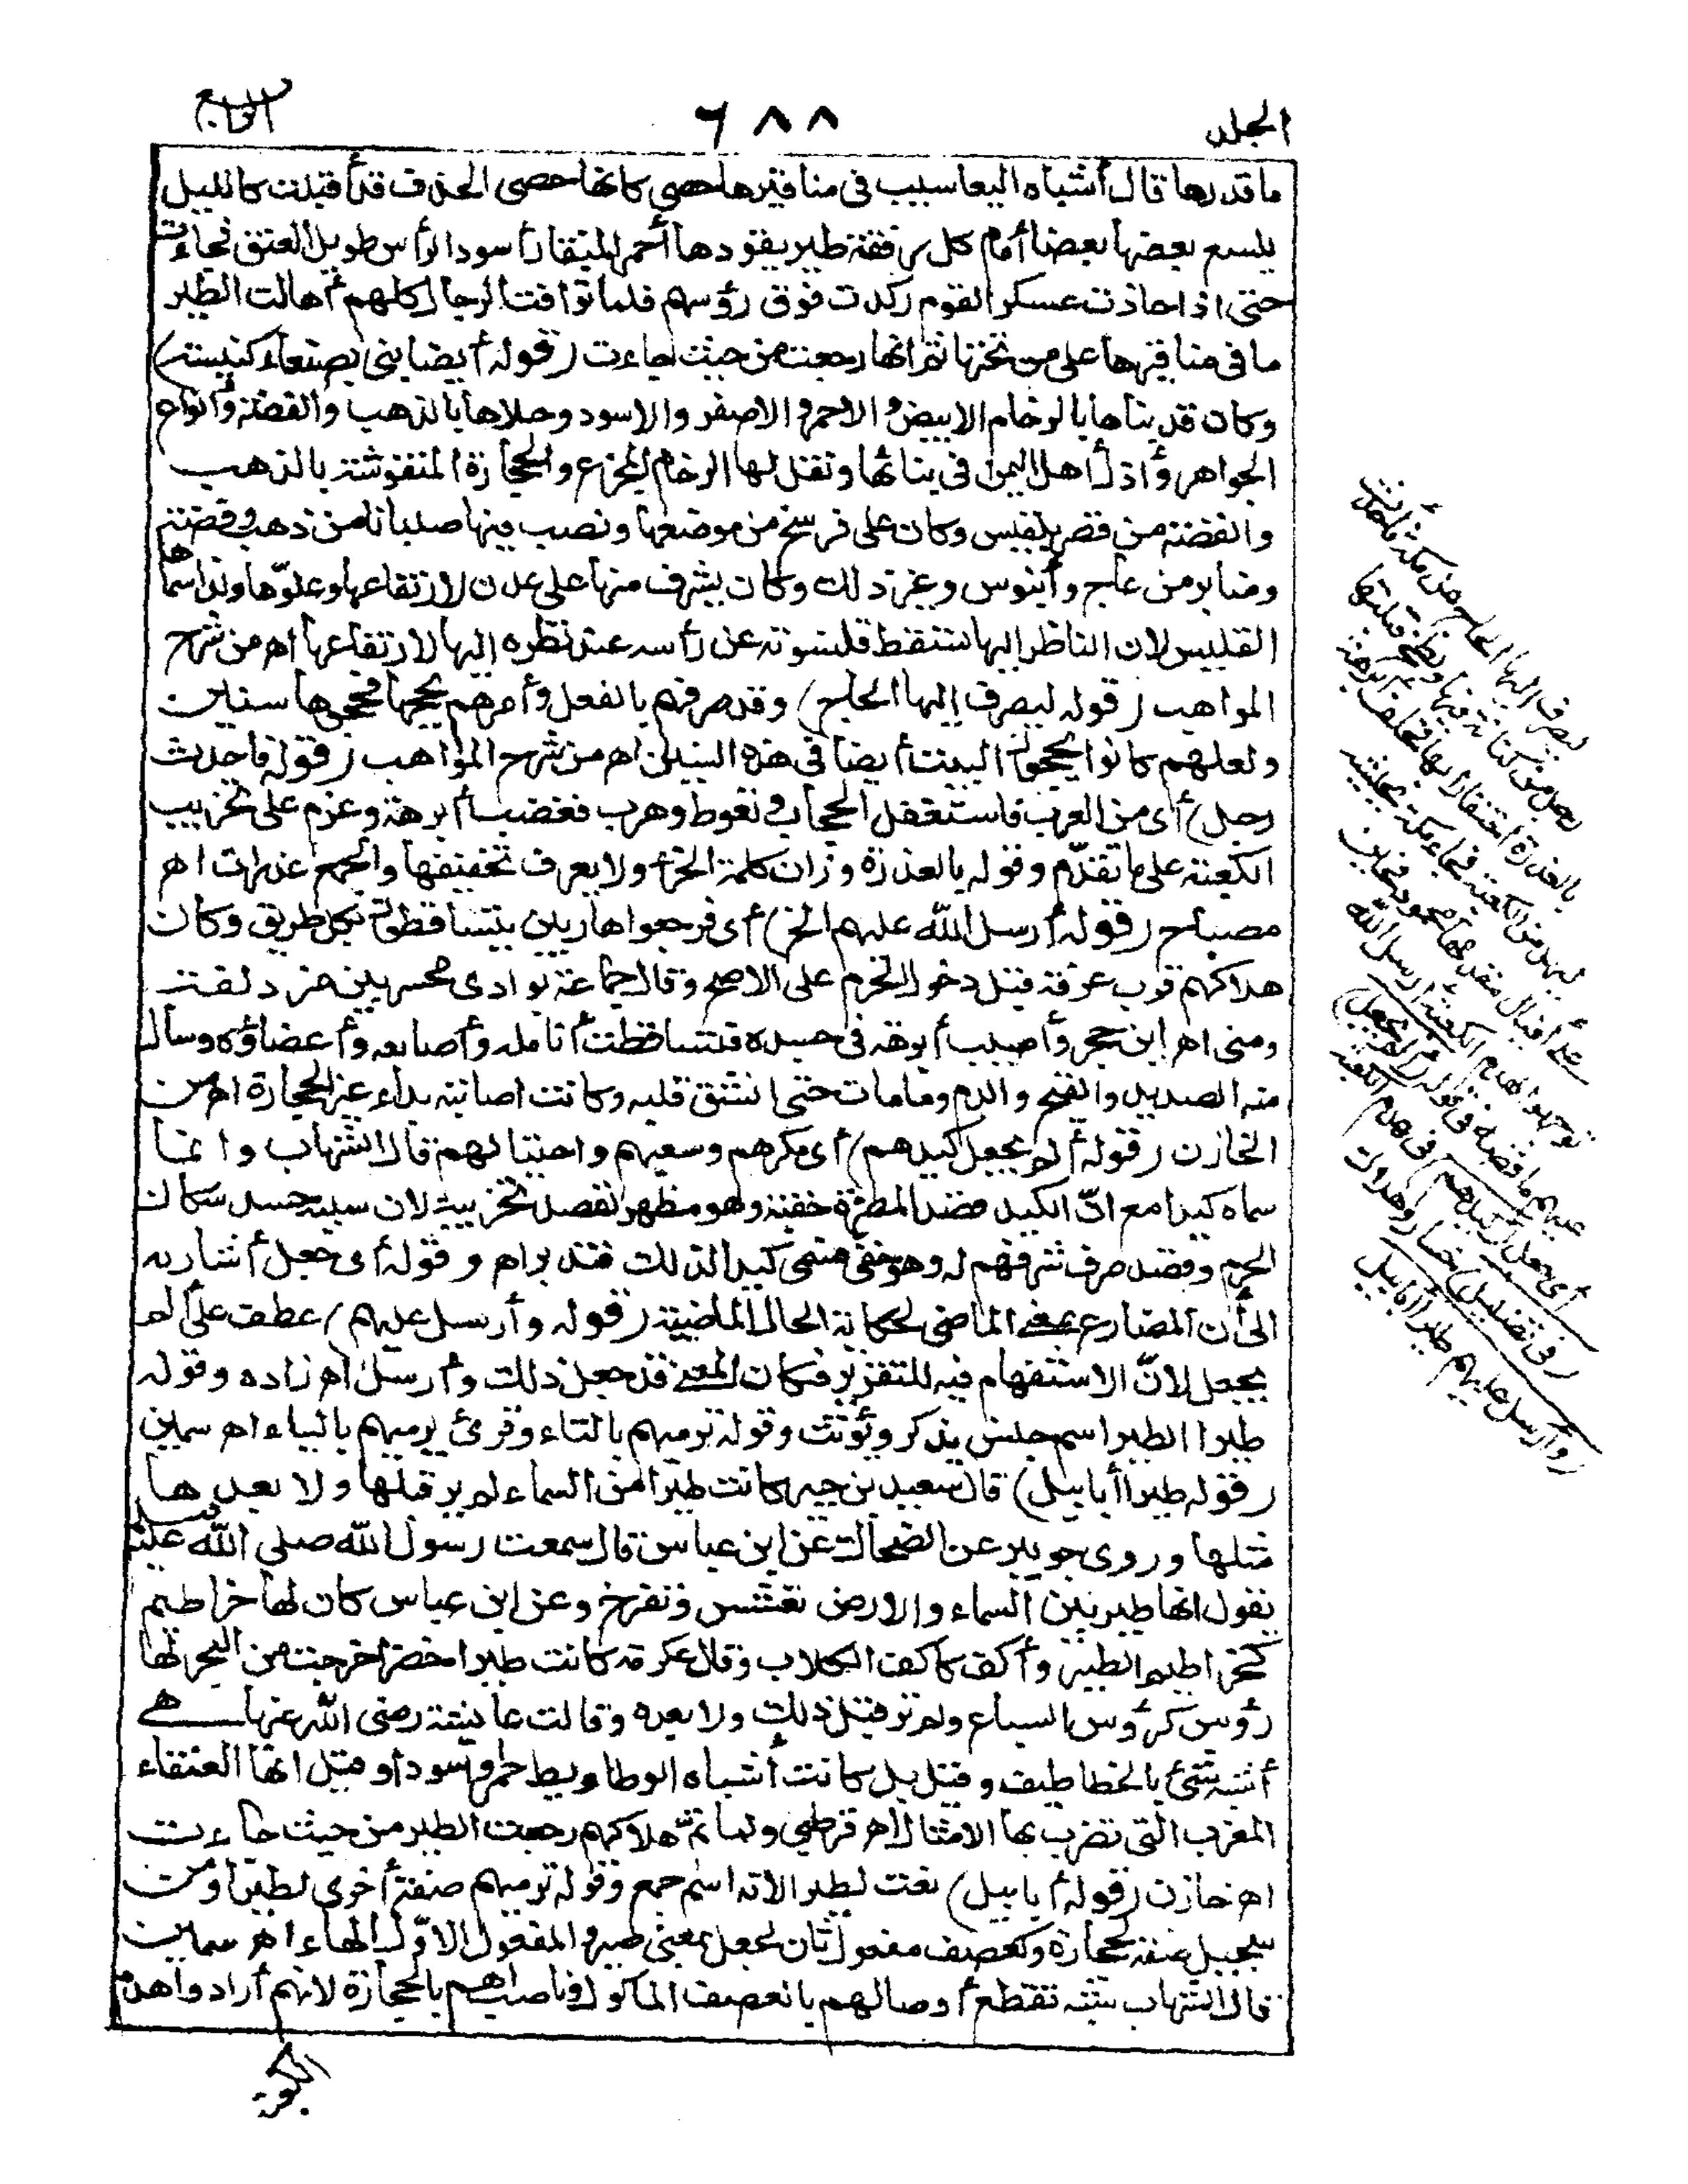 الجلد ٦٨٨ الرابع
ما قدرها قال أشباه اليعاسيب فى مناقيرها حصى كانها حصى الحذف قد أقبلت كالليل
يتبع بعضها بعضا أمام كل رفقة طير يقودها أحمر المنقار أسود الرأس طويل العنق فجاءت
حتى اذا حاذت عسكر القوم ركدت فوق رؤسهم فلما توافت الرجال كلهم أهالت الطير
ما فى مناقيرها على من تحتها ثم انها رجعت من حيث جاءت (قوله أيضا بنى بصنعاء كنيسة)
وكان قد بناها بالرخام الابيض والاحمر والاصفر والاسود وحلاها بالذهب والفضة وأنواع
الجواهر وأذل أهل اليمن فى بنائها ونقل لها الرخام المجزع والحجارة المنقوشة بالذهب
والفضة من قصر بلقيس وكان على فرسخ من موضعها ونصب فيها صلبانا من ذهب وفضة
ومنابر من عاج وأبنوس وغير ذلك وكان يشرف منها على عدن لارتفاعها وعلوّها ولذا سماها
القليس لان الناظر اليها تسقط قلنسوته عن رأسه عند نظره اليها لارتفاعها اهـ من شرح
المواهب (قوله ليصرف إليها الحاج) وقد صرفهم بالفعل وأمرهم بحجها فحجوها سنين
ولعلهم كانوا يحجون البيت أيضا فى هذه السنين اهـ من شرح المواهب (قوله فاحدث
رجل) أى من العرب فاستغفل الحجاب وتغوط وهرب فغضب أبرهة وعزم على تخريب
الكعبة على ما تقدّم وقوله بالعذرة وزان كلمة الخرء ولا يعرف تخفيفها والجمع عذرات اهـ
مصباح (قوله أرسل الله عليهم الخ) أى فرجعوا هاربين يتساقطون بكل طريق وكان
هلاكهم قرب عرفة قبل دخول الحرم على الاصح وقال جماعة بوادى محسر بين مزدلفة
ومنى اهـ ابن حجر وأصيب أبرهة فى جسده فتساقطت أنامله وأصابعه وأعضاؤه وسال
منه الصديد والقيح والدم وما مات حتى انشق قلبه وكانت اصابته بداء غير الحجارة اهـ من
الخازن (قوله ألم يجعل كيدهم) أى مكرهم وسعيهم واحتيالهم قال الشهاب وانما
سماه كيدا مع انّ الكيد قصد المضرة خفية وهو مظهر لقصد تخريبه لان سببه حسد سكان
الحرم وقصد صرف شرفهم له وهو خفى فسمى كيدا لذلك فتدبر اهـ وقوله أى جعل أشار به
الى أن المضارع بمعنى الماضى لحكاية الحال الماضية (قوله وأرسل عليهم) عطف على ألم
يجعل لانّ الاستفهام فيه للتقرير فكان المعنى قد جعل ذلك وأرسل اهـ زاده وقوله
طيرا الطير اسم جنس يذكر ويؤنث وقوله ترميهم بالتاء وقرئ يرميهم بالياء اهـ سمين
(قوله طيرا أبابيل) قال سعيد بن جبير كانت طيرا من السماء لم ير قبلها ولا بعدها
مثلها وروى جويبر عن الضحاك عن ابن عباس قال سمعت رسول الله صلى الله عليه وسلم
يقول انها طير بين السماء والارض تعشش وتفرخ وعن ابن عباس كان لها خراطيم
كخراطيم الطير وأكف كاكف الكلاب وقال عكرمة كانت طيرا خضرا خرجت من البحر لها
رؤس كرؤس السباع ولم تر قبل ذلك ولا بعده وقالت عائشة رضى الله عنها هى
أشبه شئ بالخطاطيف وقيل بل كانت أشباه الوطاويط حمر وأسودا وقيل انها العنقاء
المغرب التى تضرب بها الامثال اهـ قرطبى ولما تمّ هلاكهم رجعت الطير من حيث جاءت
اهـ خازن (قوله أبابيل) نعت لطيرا لانه اسم جمع وقوله ترميهم صفة أخرى لطيرا ومن
سجيل صفة لحجارة وكعصف مفعول ثان لجعل بمعنى صير والمفعول الاوّل الهاء اهـ سمين
قال الشهاب شبه تقطع أوصالهم بالعصف المأكول فاصابهم بالحجارة لانهم أرادوا هدم
الكعبة
ليصرف اليها الحاج من مكة فأحدث
رجل من كنانة فيها ولطخ قبلتها
بالعذرة احتقارا بها فحلف أبرهة
ليهدمن الكعبة فجاء مكة بجيشه
على أفيال مقدمها محمود فحين
توجهوا لهدم الكعبة أرسل الله
عليهم ما قصه فى قوله (ألم يجعل)
أى جعل (كيدهم) فى هدم الكعبة
(فى تضليل) خسار وهلاك
(وأرسل عليهم طيرا أبابيل)